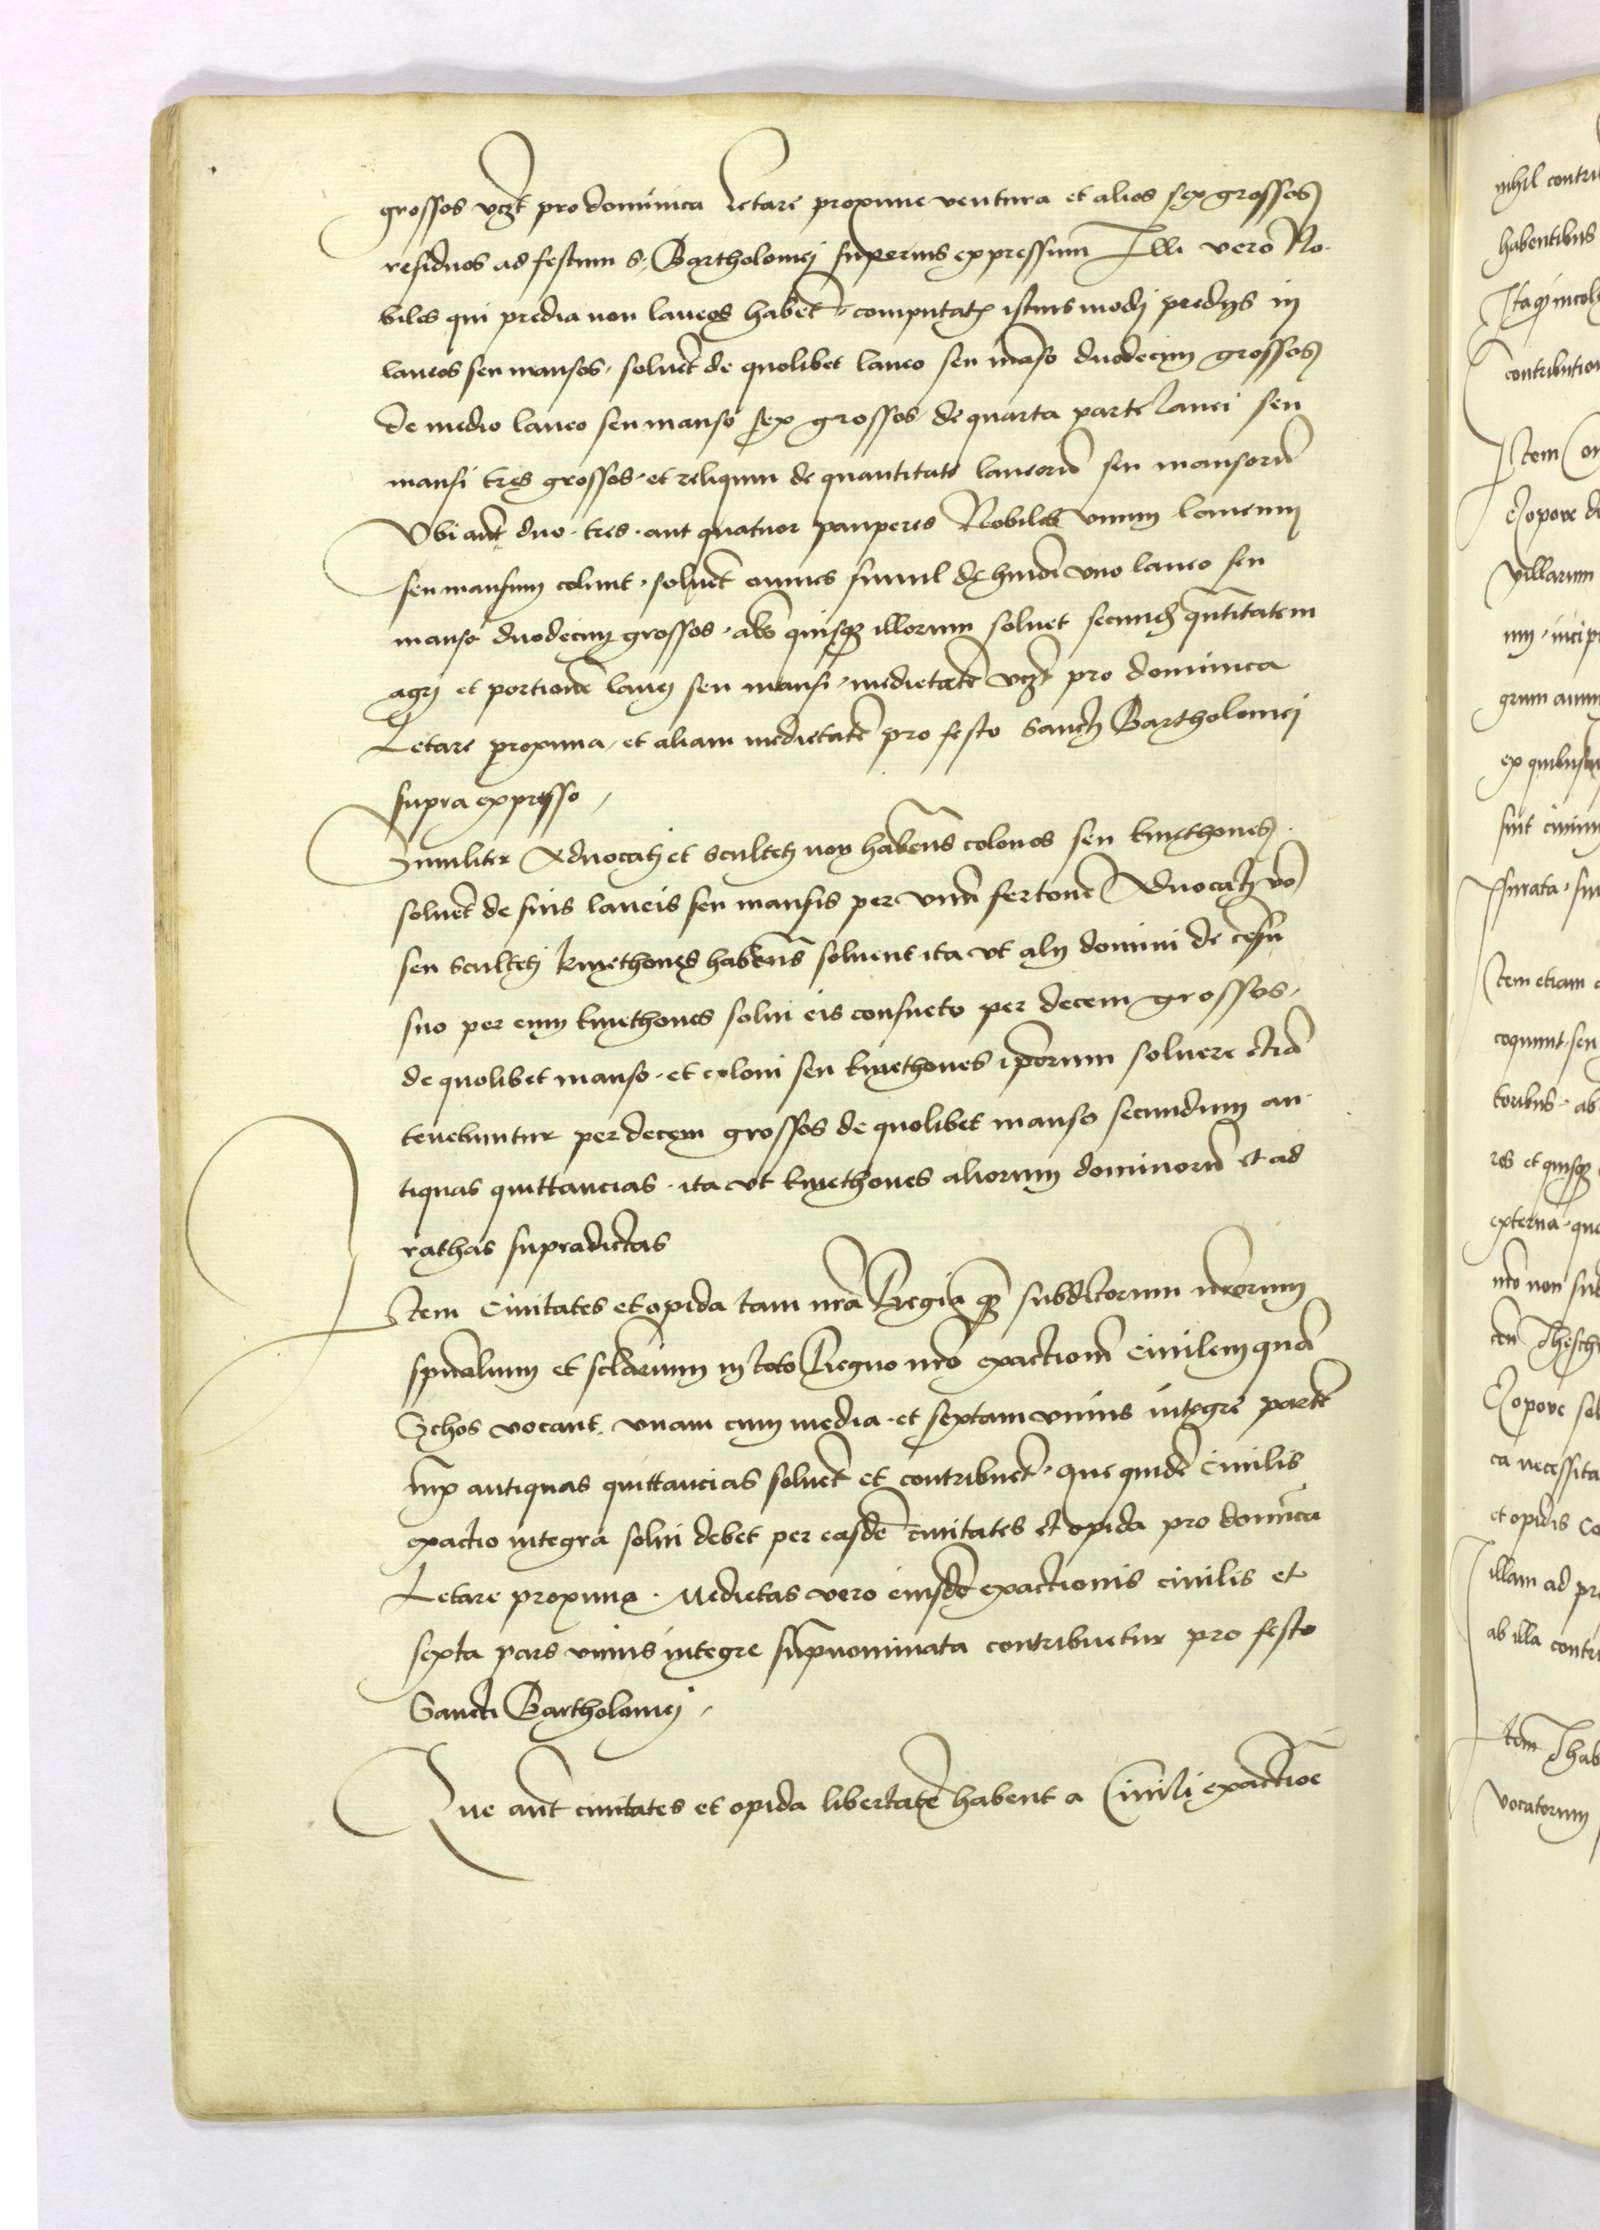 grossos vczt pro dominica Letare proxime ventura et alios sex grossos
residuos ad festum s. Bartholomei superius expressum Illi vero No-
biles qui predia non laneos habēt computatis istiusmodi predijs in
laneos seu mansos, soluēt de quolibet laneo seu māso duodecim grossos
de medio laneo seu manso sex grossos de quarta parte lanei seu
mansi tres grossos et reliquum de quantitate laneorū seu mansorū
Vbi aūt duo tres aut quatuor pauperes Nobiles vnum laneum
seu mansum colunt, soluēt omnes simul de hmōi vno laneo seu
manso duodecim grossos quisqȝ illorum soluet secundū quātitatem
agri et portionē lanei seu mansi, medietatē vczt pro dominica
Letare proxima, et aliam medietatē pro festo Sancti Bartholomei
supra expresso
Similiter Aduocati et Sculteti non habentes colonos seu kmethones
soluēt de suis laneis seu mansis per vnū fertonē Aduocati vō
seu Sculteti kmethones habentes soluent ita vt alij domini de cēsu
suo per eum kmethones solui eis consueto per decem grossos,
de quolibet manso et coloni seu kmethones ipsorum soluere etiā
tenebuntur per decem grossos de quolibet manso secundum an-
tiquas quittancias ita vt kmethones aliorum dominorū et ad
rathas supradictas
Item Ciuitates et opida tam nrā Regia qȝ subditorum nrorum
spūalium et sclārium in toto Regno nrō exactionē Ciuilem quā
Schos vocant vnam cum media et sextam vnius integre partē
iux antiquas quittancias soluēt et contribuēt, que quidē Ciuilis
exactio integra solui debet per easdē ciuitates et opida pro dominica
Letare proxima. Medietas vero eiusdē exactionis ciuilis et
sexta pars vnius integre supnominata contribuetur pro festo
Sancti Bartholomei
Que aūt ciuitates et opida libertatē habent a Ciuili exactiōe
nihil contri
habentibus
contribution
Item
villarum
grum
sint
Item etiam
coquunt seu
toribus ab
res et quisqȝ
externa
nrō non sub
ca necessita
et opidis
illam ad pr
ab illa contr
Item
vocatorum